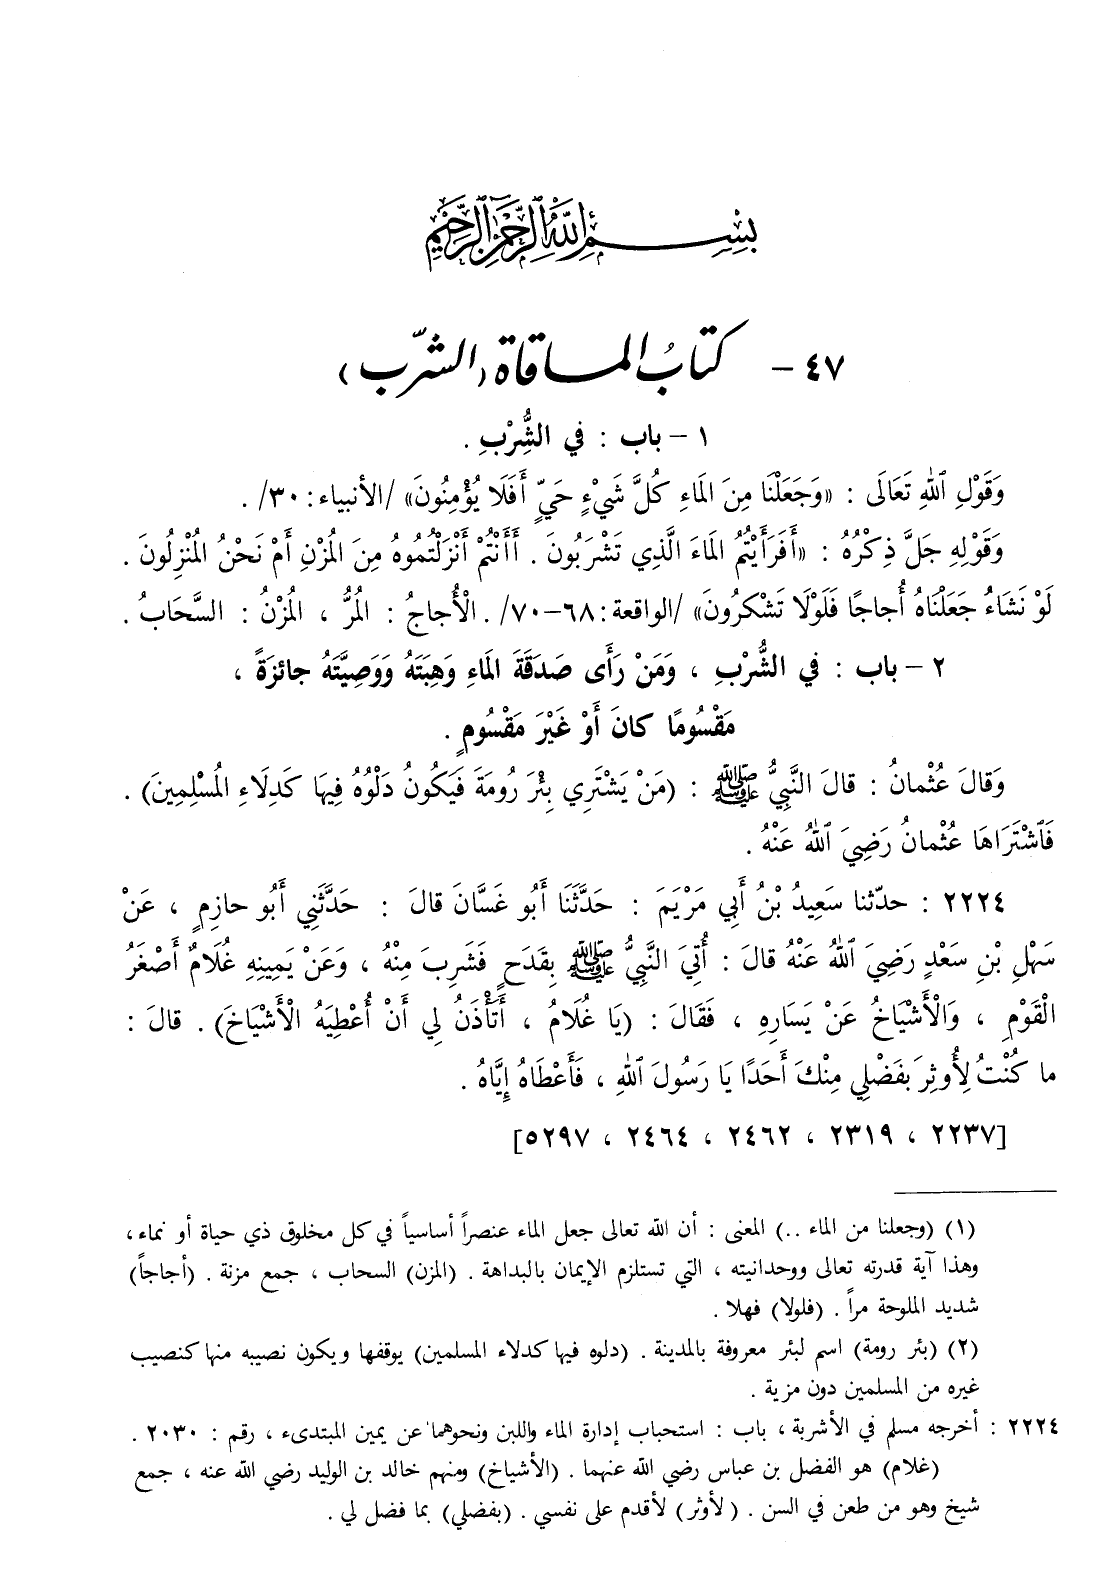 بِسْمِ اللَّهِ الرَّحْمَنِ الرَّحِيمِ
٤٧ - كتابُ المساقاة (الشّرب)
١ - باب : في الشُّرْبِ .
وَقَوْلِ ٱللهِ تَعَالَى : «وَجَعَلْنَا مِنَ المَاءِ كُلَّ شَيْءٍ حَيٍّ أَفَلَا يُؤْمِنُونَ» /الأنبياء: ٣٠/ .
وَقَوْلِهِ جَلَّ ذِكْرُهُ : «أَفَرَأَيْتُمُ المَاءَ الَّذِي تَشْرَبُونَ . أَأَنْتُمْ أَنْزَلْتُمُوهُ مِنَ المُزْنِ أَمْ نَحْنُ المُنْزِلُونَ .
لَوْ نَشَاءُ جَعَلْنَاهُ أُجاجًا فَلَوْلَا تَشْكُرُونَ» /الواقعة: ٦٨-٧٠/ . الْأُجاجُ : المُرُّ ، المُزْنُ : السَّحَابُ .
٢ - باب : في الشُّرْبِ ، وَمَنْ رَأَى صَدَقَةَ المَاءِ وَهِبَتَهُ وَوَصِيَّتَهُ جائزَةً ،
مَقْسُومًا كانَ أَوْ غَيْرَ مَقْسُومٍ .
وَقالَ عُثْمانُ : قالَ النَّبِيُّ ﷺ : (مَنْ يَشْتَرِي بِئْرَ رُومَةَ فَيَكُونُ دَلْوُهُ فِيهَا كَدِلَاءِ المُسْلِمِينَ) .
فَٱشْتَرَاهَا عُثْمانُ رَضِيَ ٱللهُ عَنْهُ .
٢٢٢٤ : حدّثنا سَعِيدُ بْنُ أَبِي مَرْيَمَ : حَدَّثَنَا أَبُو غَسَّانَ قالَ : حَدَّثَنِي أَبُو حازِمٍ ، عَنْ
سَهْلِ بْنِ سَعْدٍ رَضِيَ ٱللهُ عَنْهُ قالَ : أُتِيَ النَّبِيُّ ﷺ بِقَدَحٍ فَشَرِبَ مِنْهُ ، وَعَنْ يَمِينِهِ غُلَامٌ أَصْغَرُ
الْقَوْمِ ، وَالْأَشْيَاخُ عَنْ يَسَارِهِ ، فَقَالَ : (يَا غُلَامُ ، أَتَأْذَنُ لِي أَنْ أُعْطِيَهُ الْأَشْيَاخَ) . قالَ :
ما كُنْتُ لِأُوثِرَ بِفَضْلِي مِنْكَ أَحَدًا يَا رَسُولَ ٱللهِ ، فَأَعْطَاهُ إِيَّاهُ .
[٢٢٣٧ ، ٢٣١٩ ، ٢٤٦٢ ، ٢٤٦٤ ، ٥٢٩٧]
(١) (وجعلنا من الماء ..) المعنى : أن الله تعالى جعل الماء عنصراً أساسياً في كل مخلوق ذي حياة أو نماء ،
وهذا آية قدرته تعالى ووحدانيته ، التي تستلزم الإيمان بالبداهة . (المزن) السحاب ، جمع مزنة . (أجاجاً)
شديد الملوحة مراً . (فلولا) فهلا .
(٢) (بئر رومة) اسم لبئر معروفة بالمدينة . (دلوه فيها كدلاء المسلمين) يوقفها ويكون نصيبه منها كنصيب
غيره من المسلمين دون مزية .
٢٢٢٤ : أخرجه مسلم في الأشربة ، باب : استحباب إدارة الماء واللبن ونحوهما عن يمين المبتدىء ، رقم : ٢٠٣٠ .
(غلام) هو الفضل بن عباس رضي الله عنهما . (الأشياخ) ومنهم خالد بن الوليد رضي الله عنه ، جمع
شيخ وهو من طعن في السن . (لأوثر) لأقدم على نفسي . (بفضلي) بما فضل لي .